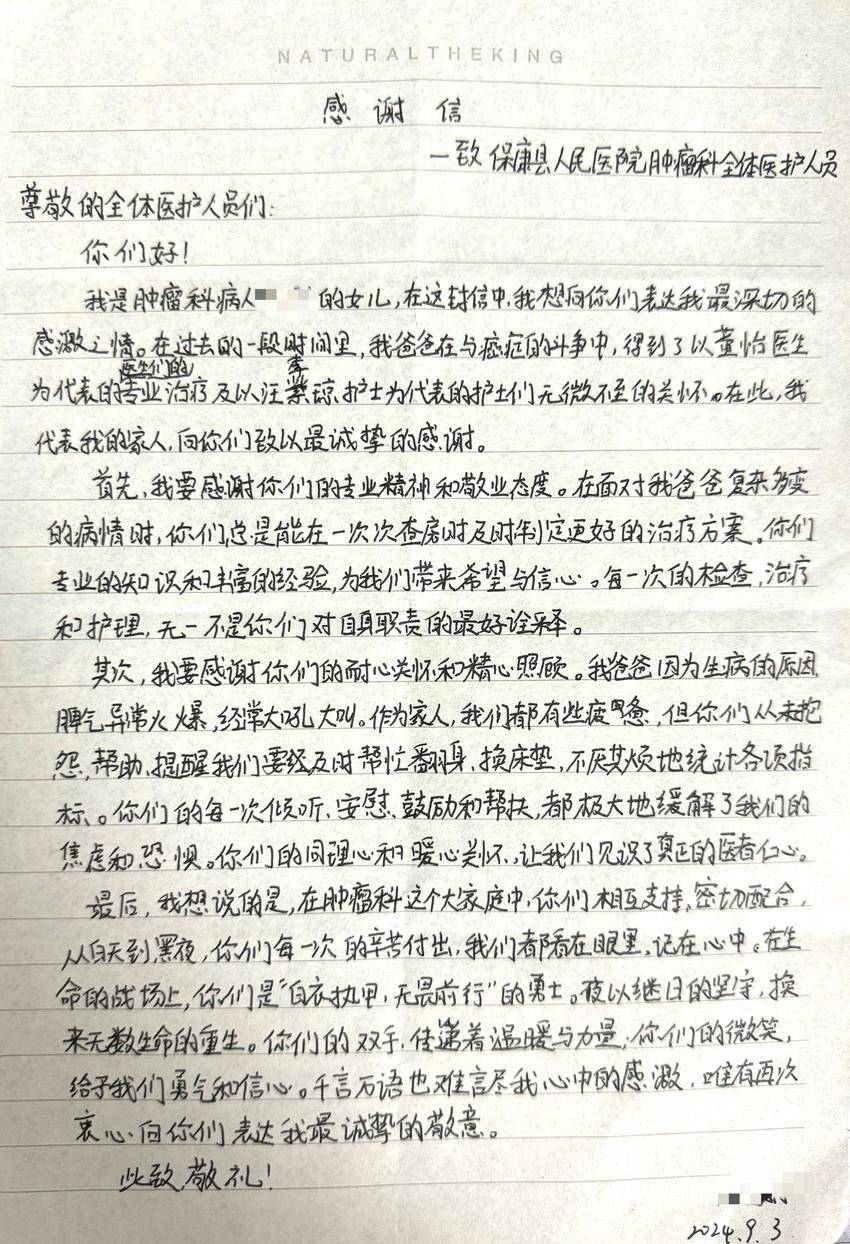 NATURALTHEKING
感谢信
一致保康县人民医院肿瘤科全体医护人员
尊敬的全体医护人员们:
你们好!
我是肿瘤科病人 的女儿,在这封信中,我想向你们表达我最深切的
感激之情。在过去的一段时间里,我爸爸在与癌症的斗争中,得到了以黄怡医生
医生们的
为代表的专业治疗及以汪 琼护士为代表的护士们无微不至的关怀。在此,我
代表我的家人,向你们致以最诚挚的感谢。
首先,我要感谢你们的专业精神和敬业态度。在面对我爸爸复杂多变
的病情时,你们总是能在一次次查房时及时制定更好的治疗方案。你们
专业的知识和丰富的经验,为我们带来希望与信心。每一次的检查,治疗
和护理,无一不是你们对自身职责的最好诠释。
其次,我要感谢你们的耐心关怀和精心照顾。我爸爸因为生病的原因
脾气异常火爆,经常大吼大叫。作为家人,我们都有些疲惫,但你们从未抱
怨,帮助、提醒我们要经及时帮忙翻身、换床垫,不厌其烦地统计各项指
标。你们的每一次倾听、安慰、鼓励和帮扶,都极大地缓解了我们的
焦虑和恐惧。你们的同理心和暖心关怀,让我们见识了真正的医者仁心。
最后,我想说的是,在肿瘤科这个大家庭中,你们相互支持,密切配合,
从白天到黑夜,你们每一次的辛苦付出,我们都看在眼里,记在心中。在生
命的战场上,你们是“白衣执甲,无畏前行”的勇士。夜以继日的坚守,换
来无数生命的重生。你们的双手,传递着温暖与力量,你们的微笑,
给予我们勇气和信心。千言万语也难言尽我心中的感激,唯有再次
衷心向你们表达我最诚挚的敬意。
此致,敬礼!
2024.9.3